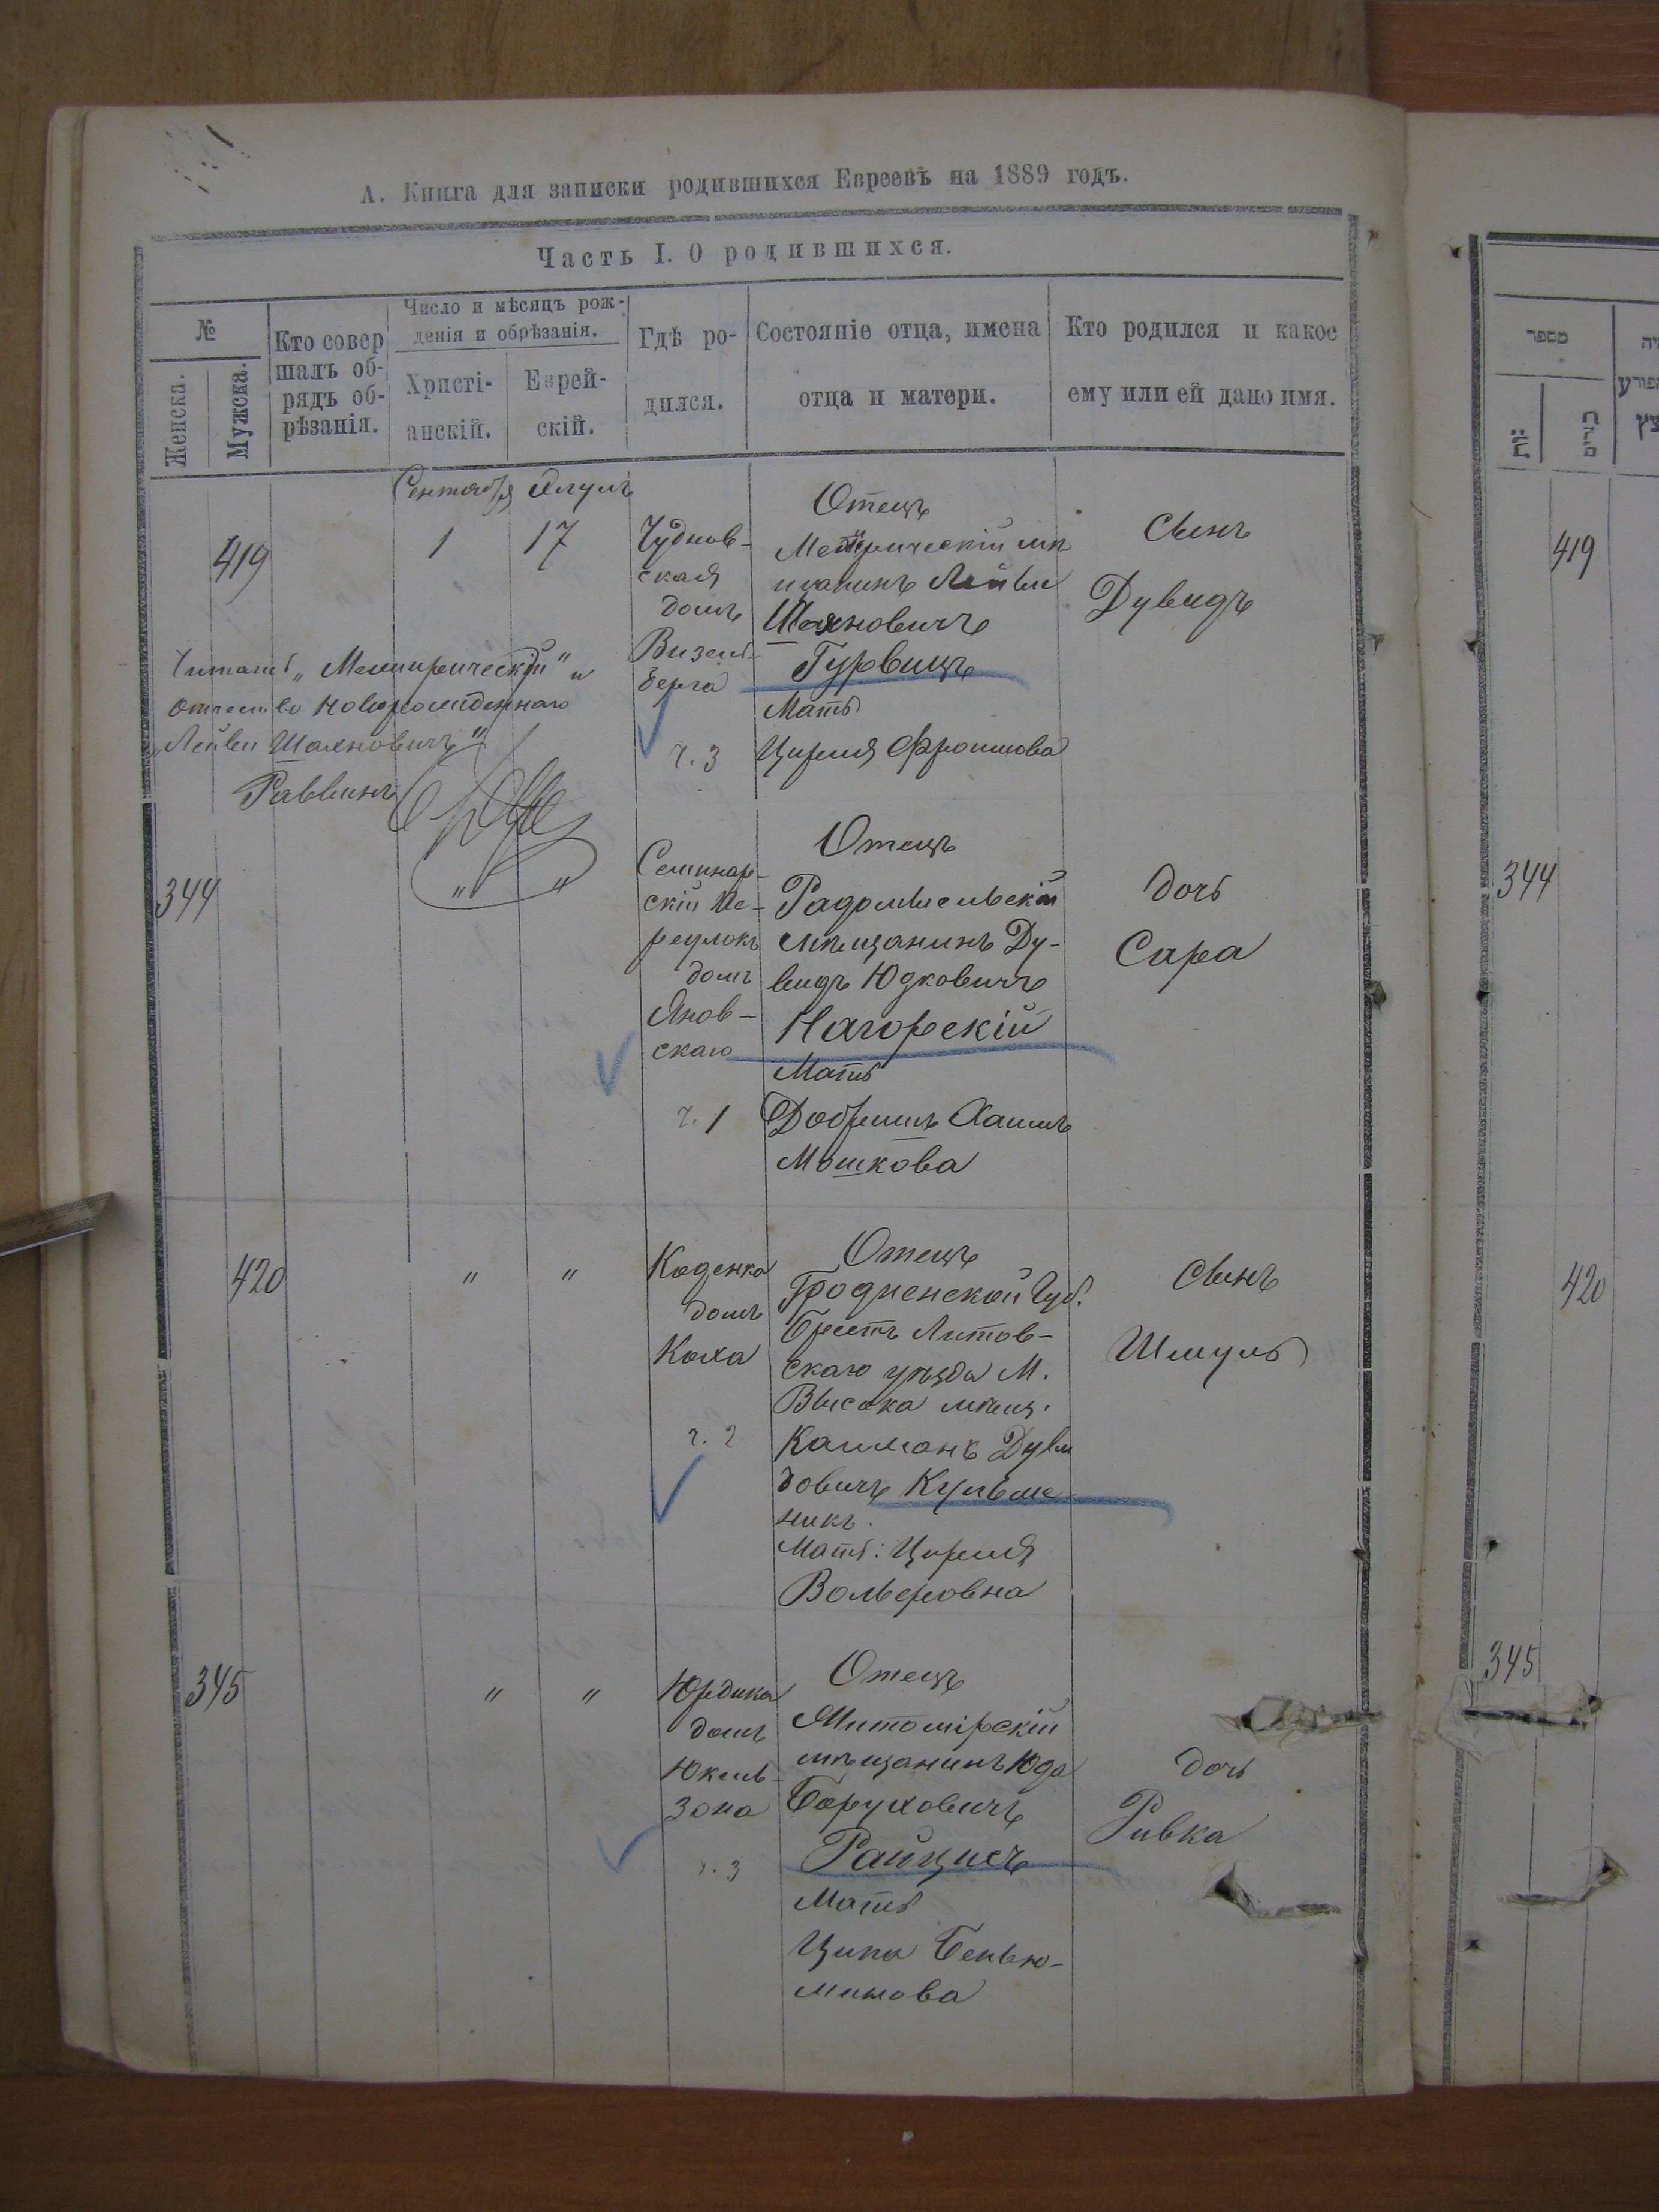 А. Книга для записки родившихся Евреевъ на 1889 годъ.
Часть I. О родившихся.
№
Женска.
Мужска.
Кто совер
шалъ об-
рядъ об-
рѣзанія.
Число и мѣсяцъ рож-
денія и обрѣзанія.
Христі-
анскій.
Еврей-
скій.
Гдѣ ро-
дился.
Состояніе отца, имена
отца и матери.
Кто родился и какое
ему или ей дано имя.
Сентября Элулъ
419
1
17
Чуднов-
ская
домъ
Визель-
берга
ч. 3
Отецъ
мѣ
щанинъ Лейви
Шахновичъ
Гурвицъ
Мать
Цирля Фроимова
Сынъ
Дувидъ
Читать „Межиричскій" и
отчество новорожденнаго
„Лейви Шахновичъ"
Раввинъ
344
"
"
Семинар-
скій Пе-
реулокъ
домъ
Янов-
скаго
ч. 1
Отецъ
Радомысльскій
мѣщанинъ Ду-
видъ Юдковичъ
Нагорскій
Мать
Мошкова
дочь
Сара
420
"
"
Каденка
домъ
Коха
ч. 2
Отецъ
Гродненской Губ.
Брестъ Литов-
скаго уѣзда М.
Высока мѣщ.
Калманъ Дуви
довичъ Кульме
никъ.
Мать: Цирля
Вольфовна
Сынъ
Шмуль
345
"
"
Юрдика
домъ
Юкель-
зона
ч. 3
Отецъ
Житомірскій
мѣщанинъ Юда
Боруховичъ
Райцисъ
Мать
Ципа Беньо-
минова
дочь
Ривка
מספר
419
344
420
345